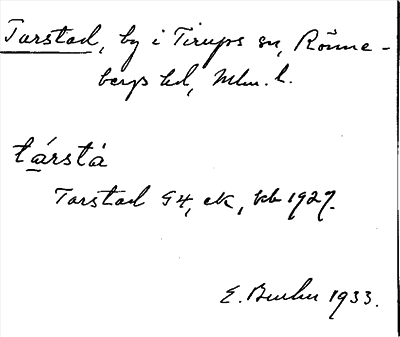 Tarstad, by i Tirups sn, Rönne-
bergs hd, Mlm. l.
társtȧ
Tarstad G4, ek, kb 1927.
E. 1933.